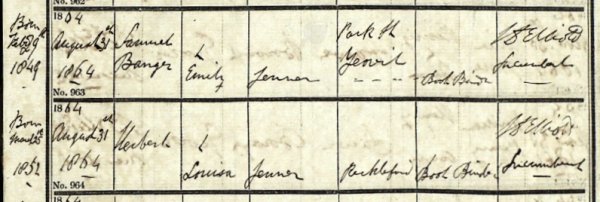 No. 962
Born 1864 Park St
29th August 31st Samuel L Yeovil
1849 1864 Banger Emily Jenner " " " Book Binder Incumbent
No. 963
Born 1864
August 31st Herbert L
1852 1864 Louisa Jenner Book Binder Incumbent
No. 964
1864